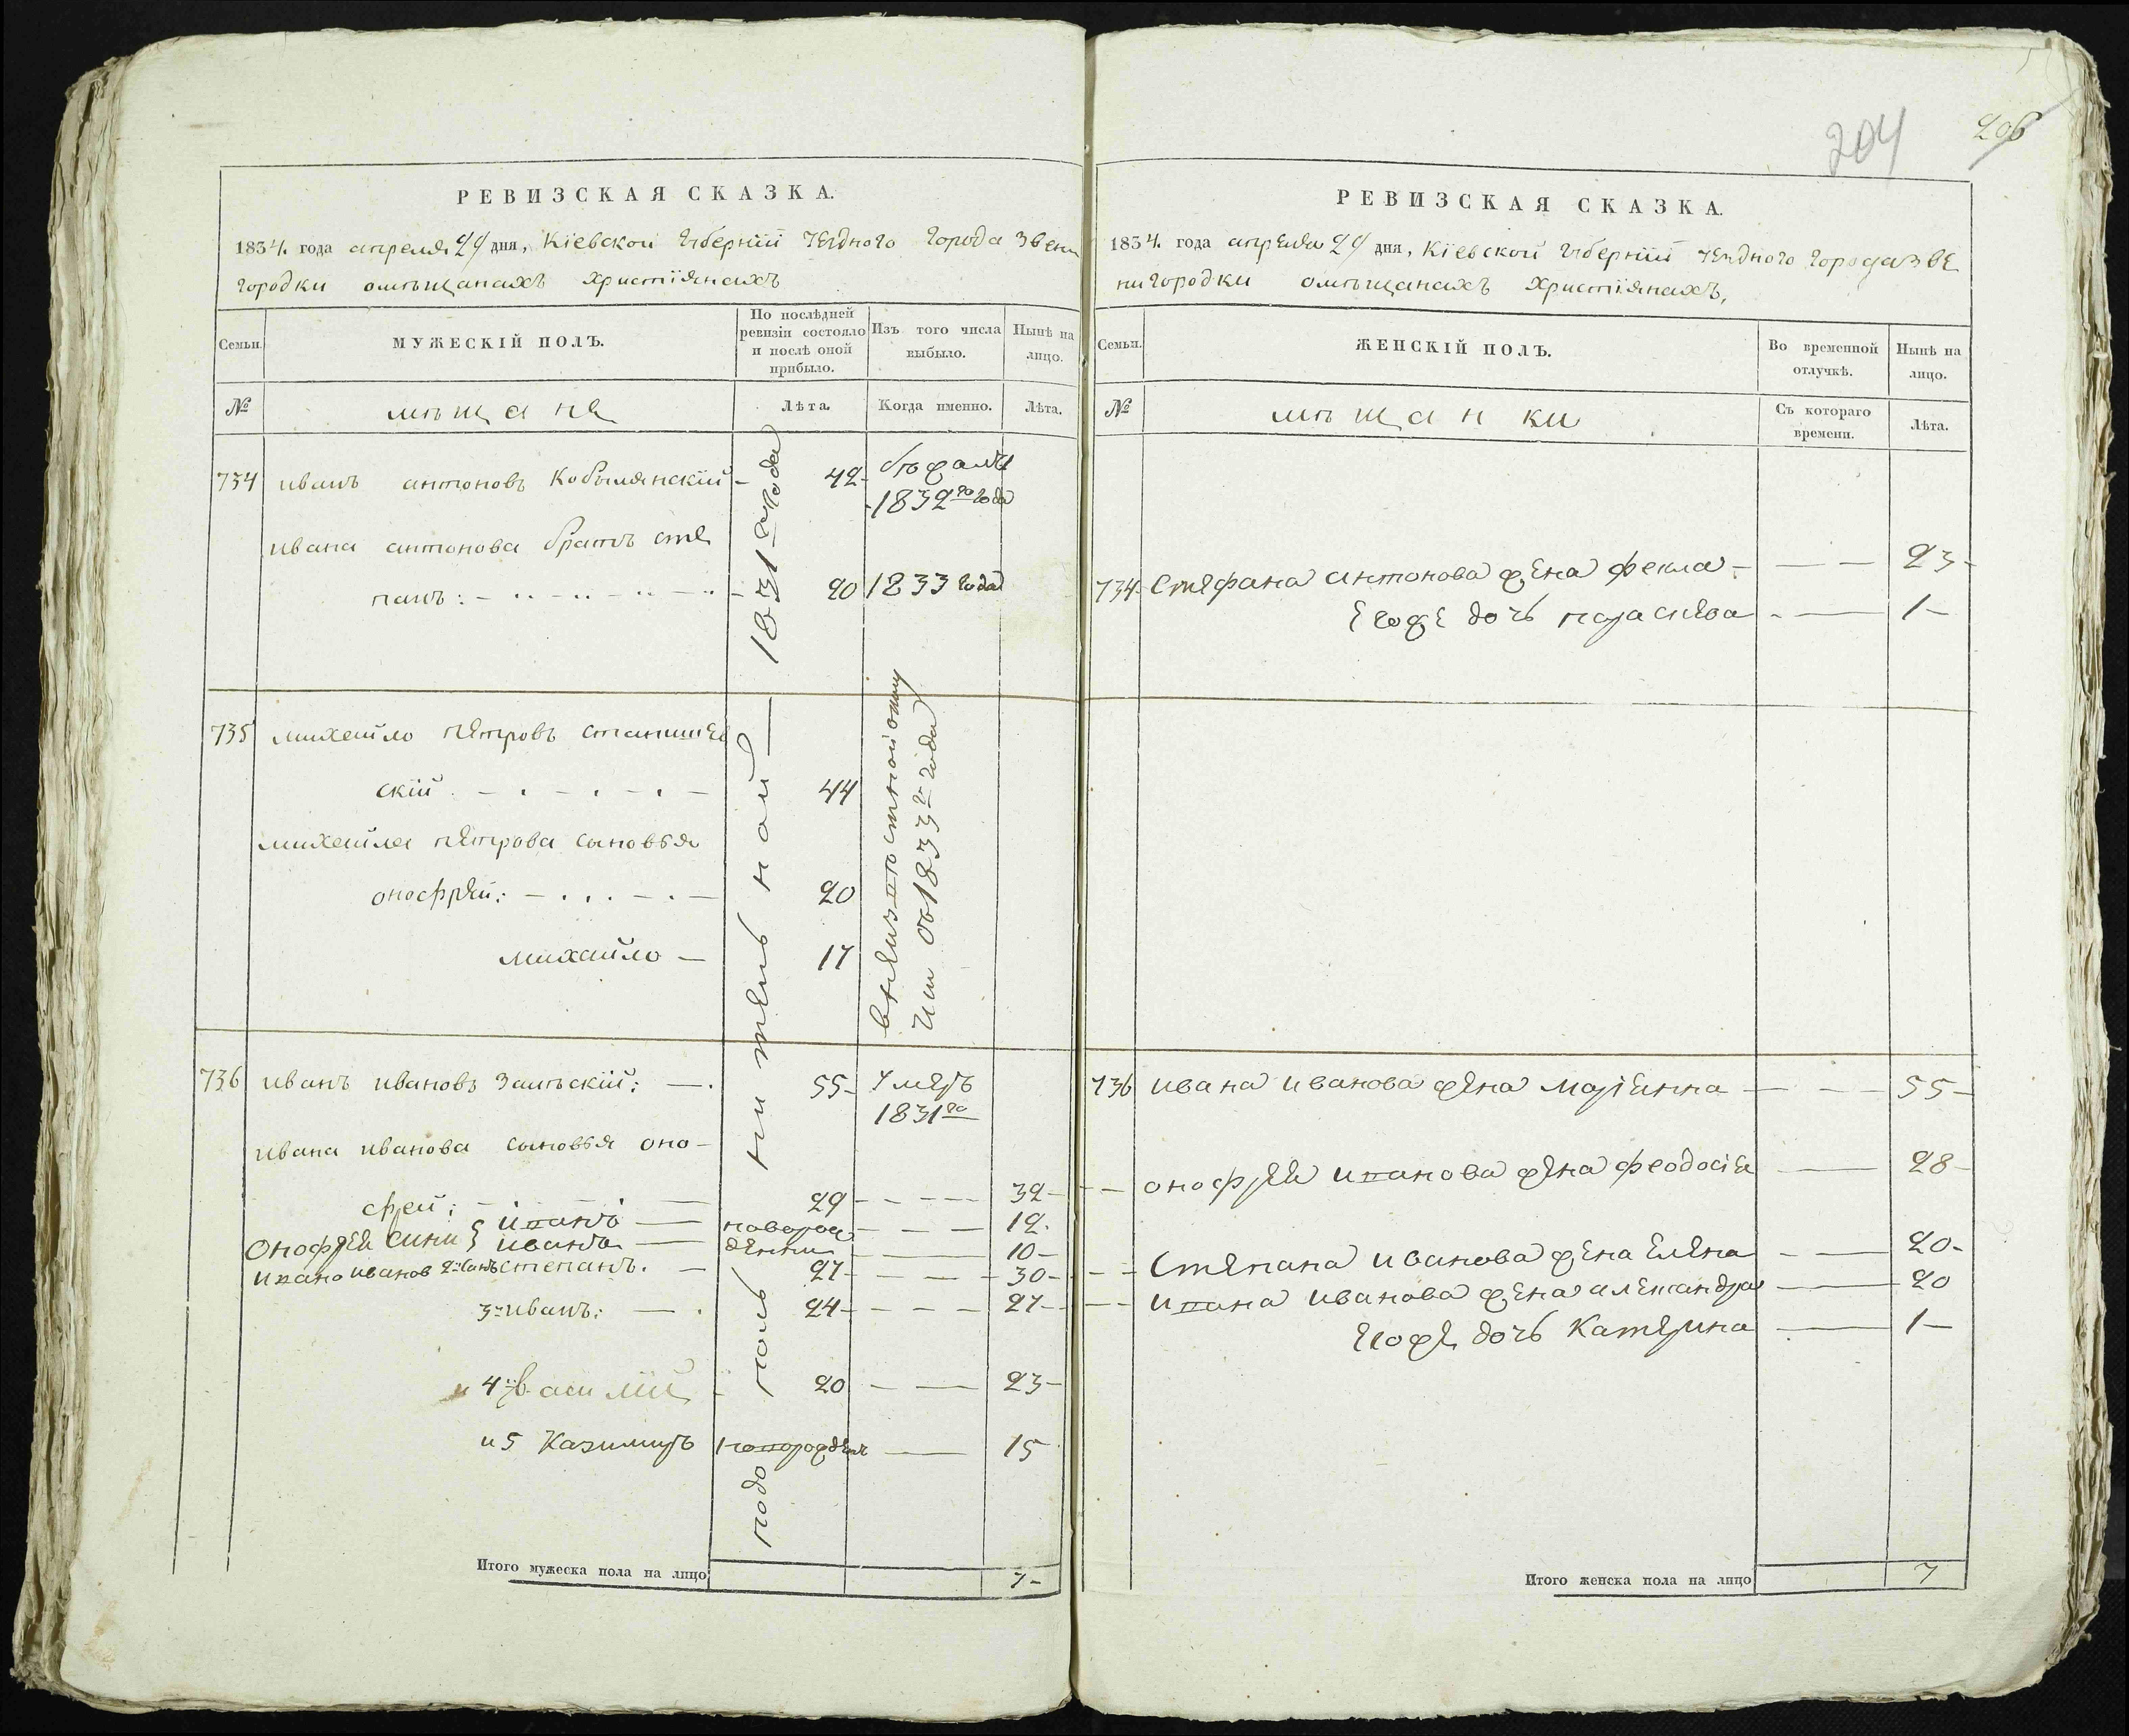 204
206
РЕВИЗСКАЯ СКАЗКА.
1834. года апреля 24 дня, Кіевской губерніи уезднаго города Звени
городки омѣщанахъ христіянахъ
Семьи.
МУЖЕСКІЙ ПОЛЪ.
По послѣдней ревизіи состояло и послѣ оной прибыло.
Изъ того числа выбыло.
Нынѣ на лицо.
№
мѣщане
Лѣта.
Когда именно.
Лѣта.
734 иванъ антоновъ Кобылянскій - 42-
1832го года
ивана антонова братъ сте
панъ: 20 1833 года
735 михайло петровъ станишев
скій 44
михайла петрова сыновья
онофрей: 20
михайло 17
736 иванъ ивановъ Залѣскій: 55- умеръ
1831го
ивана иванова сыновья оно-
фрей: 29 32-
иванъ новорож 12.
Онофрея сини иванъ денни 10-
степанъ. 27- 30-
3й иванъ: 24- 27-
и 4й василій 20 23-
и 5 Казимиръ новорожден 15
1831 года
Итого мужеска пола на лицо 7-
РЕВИЗСКАЯ СКАЗКА.
1834. года апреля 24 дня, Кіевской губерніи уезднаго города Зве
нигородки омѣщанахъ христіянахъ,
Семьи.
ЖЕНСКІЙ ПОЛЪ.
Во временной отлучкѣ.
Нынѣ на лицо.
№
мѣщанки
Съ котораго времени.
Лѣта.
734 Стефана антонова жена фекла 23-
Егоже дочь параскева 1-
736 ивана иванова жена Маріанна 55-
онофрея иванова жена феодосія 28-
Степана иванова жена Елена 20-
ивана иванова жена александра 20
Егоже дочь Катерина 1-
Итого женска пола на лицо 7